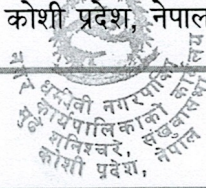 कोशी प्रदेश, नेपाल
धर्मदेवी नगरपालिका
नगर कार्यपालिकाको कार्यालय
शनिश्चरे, संखुवासभा
कोशी प्रदेश, नेपाल